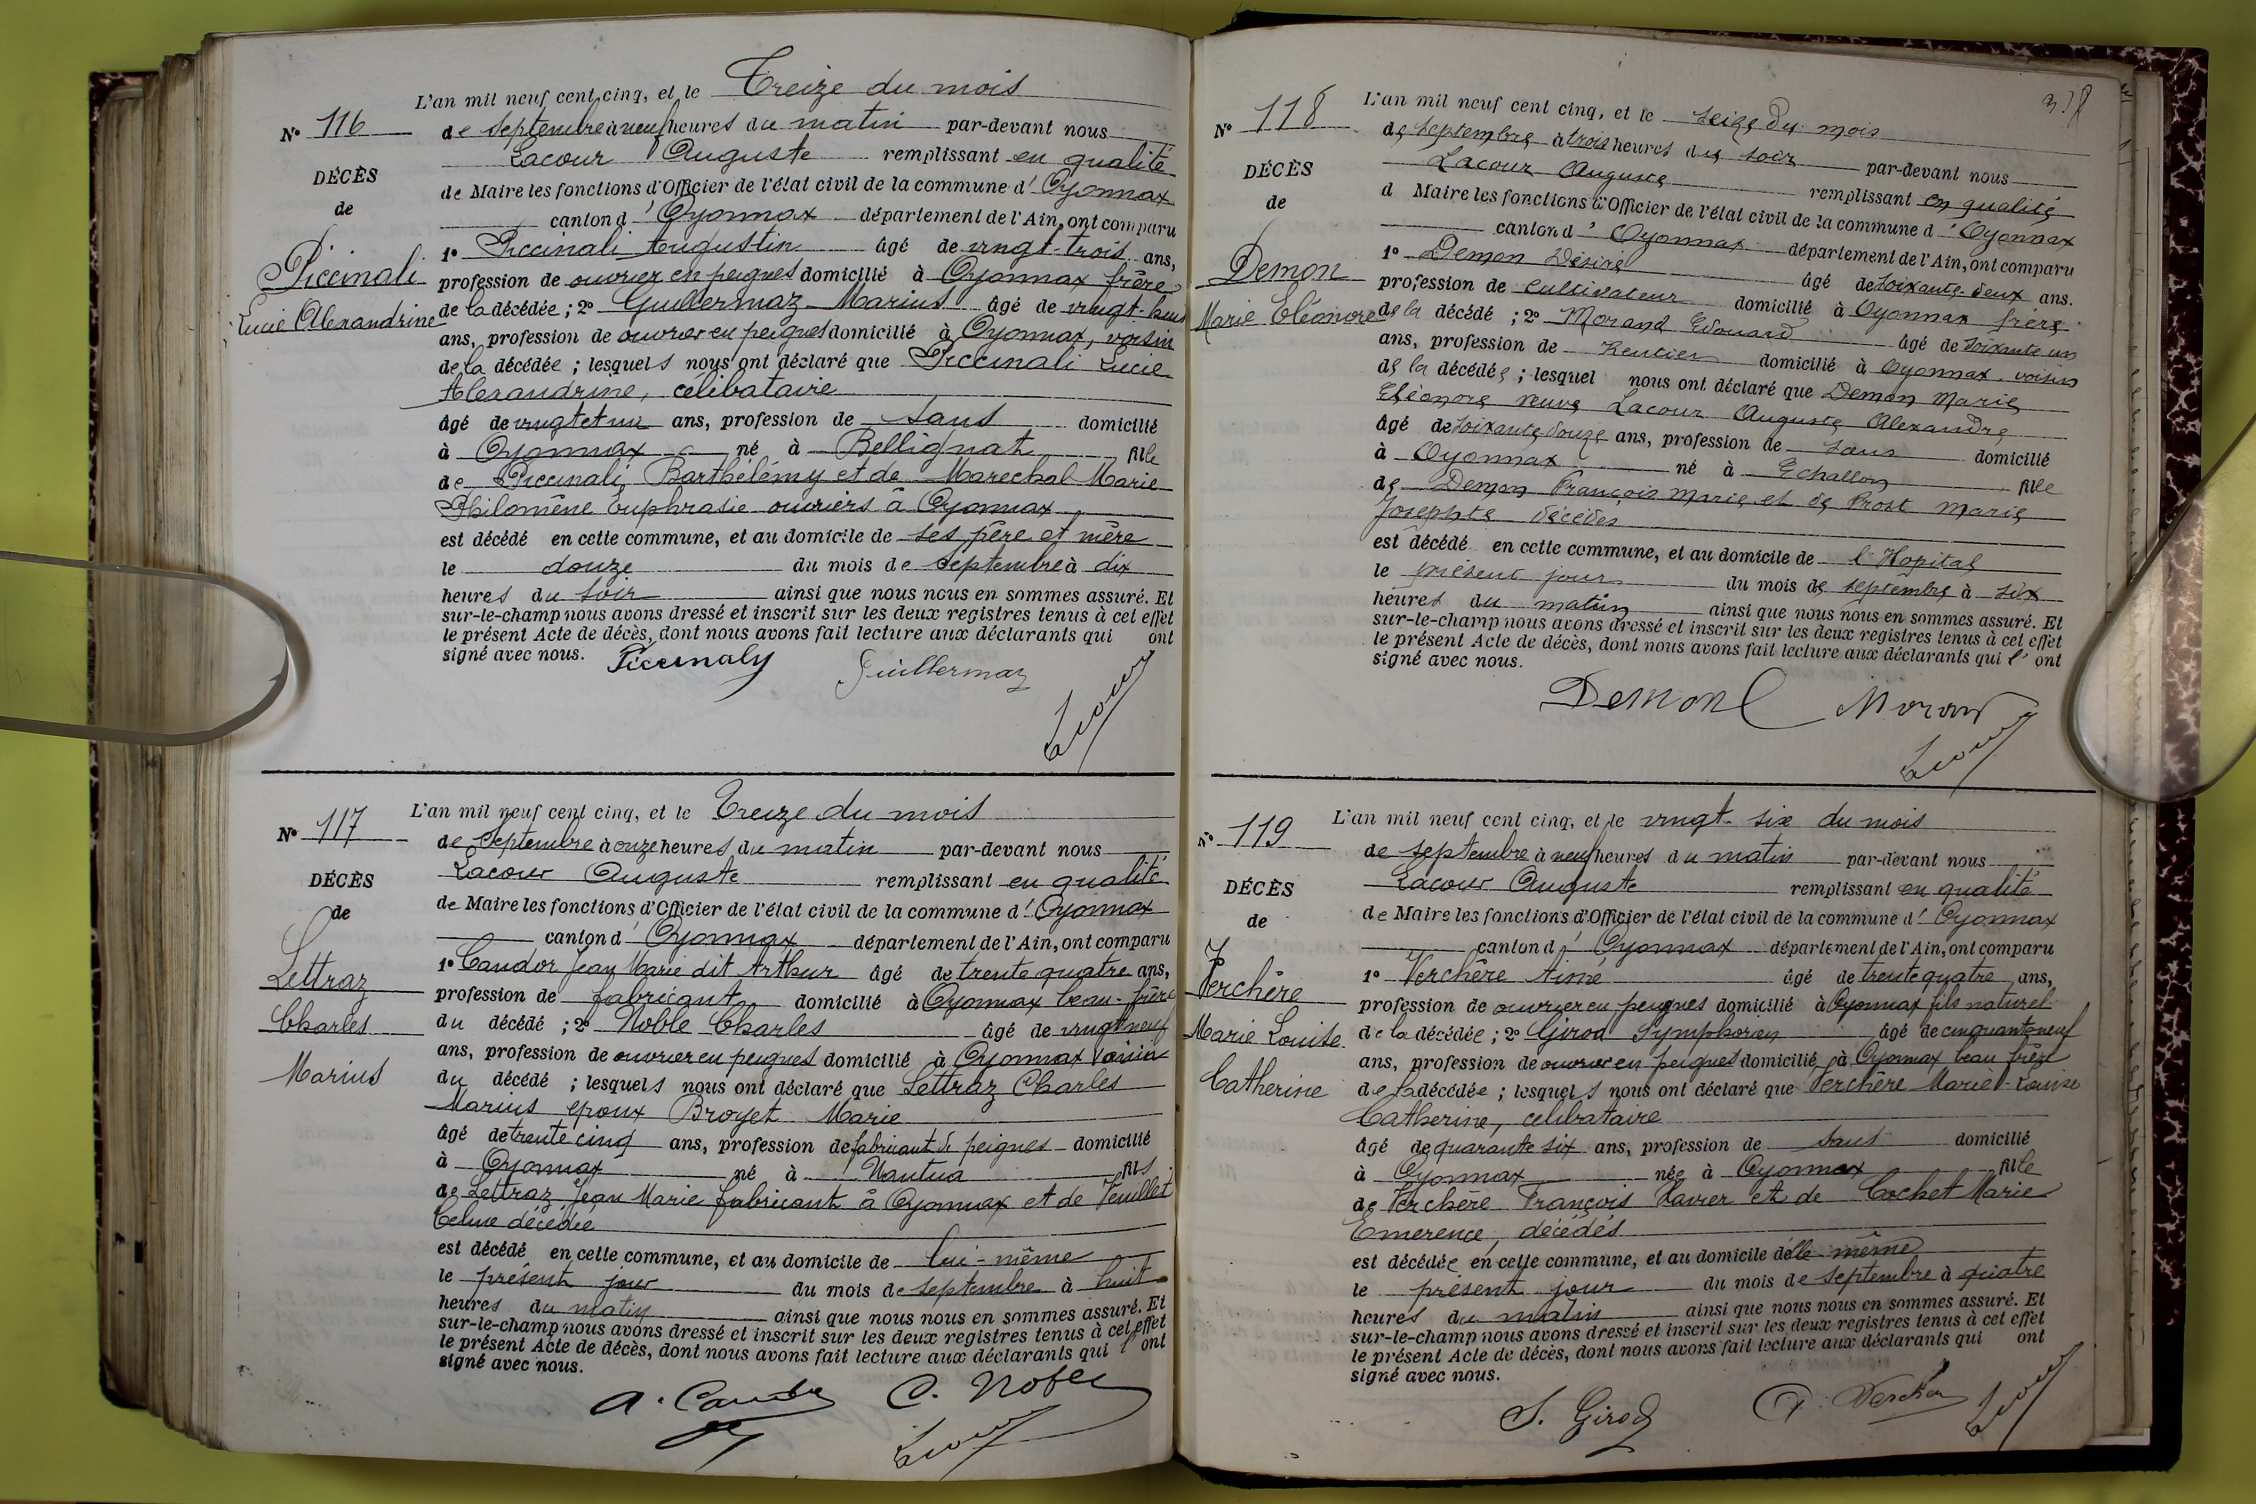 L'an mil neuf cent cinq, et le Treize du mois
N° 116
de septembre à neuf heures du matin par-devant nous
Lacour Auguste remplissant en qualité
DÉCÈS
de Maire les fonctions d'Officier de l'état civil de la commune d'Oyonnax
de
canton d'Oyonnax département de l'Ain, ont comparu
1° Piccinali Augustin âgé de vingt-trois ans,
Piccinali
profession de ouvrier en peignes domicilié à Oyonnax frère
Lucie Alexandrine
de la décédée ; 2° Guillermaz Marius âgé de vingt-huit
ans, profession de ouvrier en peignes domicilié à Oyonnax, voisin
de la décédée ; lesquels nous ont déclaré que Piccinali Lucie
Alexandrine, célibataire
âgé de vingt et un ans, profession de sans domicilié
à Oyonnax né à Bellignat fille
de Piccinali Barthélémy et de Marechal Marie
Philomène Euphrasie ouvriers à Oyonnax
est décédé en cette commune, et au domicile de ses père et mère
le douze du mois de septembre à dix
heures du soir ainsi que nous nous en sommes assuré. Et
sur-le-champ nous avons dressé et inscrit sur les deux registres tenus à cet effet
le présent Acte de décès, dont nous avons fait lecture aux déclarants qui ont
signé avec nous. Piccinaly Guillermaz
Lacour
L'an mil neuf cent cinq, et le Treize du mois
N° 117
de septembre à onze heures du matin par-devant nous
Lacour Auguste remplissant en qualité
DÉCÈS
de Maire les fonctions d'Officier de l'état civil de la commune d'Oyonnax
de
canton d'Oyonnax département de l'Ain, ont comparu
1° Candor Jean Marie dit Arthur âgé de trente quatre ans,
Lettraz
profession de fabricant domicilié à Oyonnax beau-frère
Charles
du décédé ; 2° Noble Charles âgé de vingt neuf
ans, profession de ouvrier en peignes domicilié à Oyonnax voisin
Marius
du décédé ; lesquels nous ont déclaré que Lettraz Charles
Marius époux Broyet Marie
âgé de trente cinq ans, profession de fabricant de peignes domicilié
à Oyonnax né à Nantua fils
de Lettraz Jean Marie fabricant à Oyonnax et de Veuillet
décédée
est décédé en cette commune, et au domicile de lui-même
le présent jour du mois de septembre à huit
heures du matin ainsi que nous nous en sommes assuré. Et
sur-le-champ nous avons dressé et inscrit sur les deux registres tenus à cet effet
le présent Acte de décès, dont nous avons fait lecture aux déclarants qui l'ont
signé avec nous.
C. Noble
Lacour
L'an mil neuf cent cinq, et le seize du mois
N° 118
de septembre à trois heures du soir par-devant nous
Lacour Auguste remplissant en qualité
DÉCÈS
d Maire les fonctions d'Officier de l'état civil de la commune d'Oyonnax
de
canton d'Oyonnax département de l'Ain, ont comparu
1° Demon Désiré âgé de soixante-deux ans.
Demon
profession de cultivateur domicilié à Oyonnax frère
Marie Eléonore
de la décédé ; 2° Morand Edouard âgé de soixante un
ans, profession de Rentier domicilié à Oyonnax voisin
de la décédée ; lesquel nous ont déclaré que Demon Marie
Eléonore veuve Lacour Auguste Alexandre
âgé de soixante douze ans, profession de sans domicilié
à Oyonnax né à Echallon fille
de Demon François Marie et de Prost Marie
Josephte décédés
est décédé en cette commune, et au domicile de l'Hopital
le présent jour du mois de septembre à six
heures du matin ainsi que nous nous en sommes assuré. Et
sur-le-champ nous avons dressé et inscrit sur les deux registres tenus à cet effet
le présent Acte de décès, dont nous avons fait lecture aux déclarants qui l'ont
signé avec nous.
Demon Morand
Lacour
L'an mil neuf cent cinq, et le vingt-six du mois
N° 119
de septembre à neuf heures du matin par-devant nous
Lacour Auguste remplissant en qualité
DÉCÈS
de Maire les fonctions d'Officier de l'état civil de la commune d'Oyonnax
de
canton d'Oyonnax département de l'Ain, ont comparu
1° Verchère Aimé âgé de trente quatre ans,
Verchère
profession de ouvrier en peignes domicilié à Oyonnax fils naturel
Marie Louise
de la décédée ; 2° Girod Symphorien âgé de cinquante neuf
ans, profession de ouvrier en peignes domicilié à Oyonnax beau frère
Catherine
de la décédée ; lesquels nous ont déclaré que Verchère Marie-Louise
Catherine, célibataire
âgé de quarante six ans, profession de sans domicilié
à Oyonnax née à Oyonnax fille
de Verchère François Xavier et de Cochet Marie
Emerence, décédés
est décédée en cette commune, et au domicile d'elle même
le présent jour du mois de septembre à quatre
heures du matin ainsi que nous nous en sommes assuré. Et
sur-le-champ nous avons dressé et inscrit sur les deux registres tenus à cet effet
le présent Acte de décès, dont nous avons fait lecture aux déclarants qui ont
signé avec nous.
S. Girod
Lacour